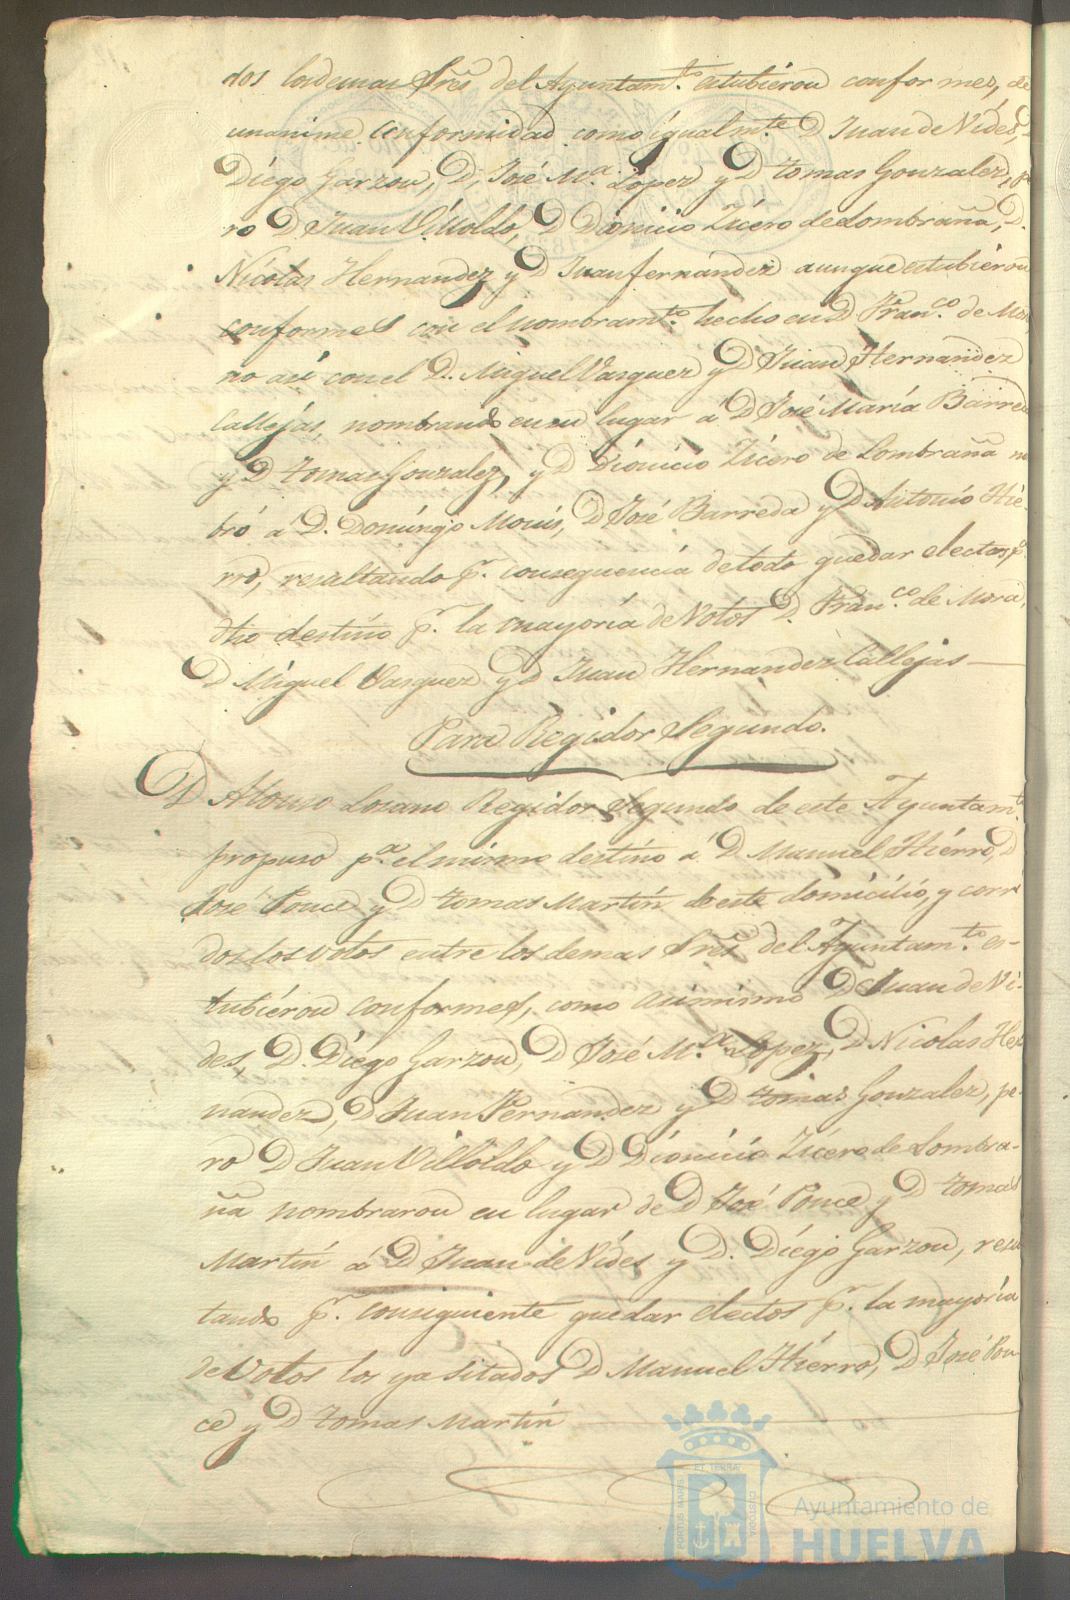 dos los demas Sres. del Ayuntamto. estubieron conformes, de
unanime conformidad como igualmte. D. Juan de Nides,
Diego Garzon, D. José Ma. Lopez y D. Tomas Gonzalez, pe
ro D. Juan Villoldo, D. Dionicio Zícero de Lombraña, D.
Nicolas Hernandez y D. Juan fernandez aunque estubieron
conformes con el nombramto. hecho en D. Franco. de Mora
no asi con el D. Miguel Vasquez y D. Juan Hernandez
Callejas, nombrando en su lugar á D. José María Barreda
y D. Tomas Gonzalez, y D. Dionicio Zícero de Lombraña no
bró á D. Domingo Monis, D. José Barreda y D. Antonio Hie-
rro, resultando pr. consequencia de todo quedar electos pa.
dho destino pr. la mayoría de Votos D. Franco. de Mora,
D. Miguel Vasquez y D. Juan Hernandez Callejas
Para Regidor Segundo.
D. Alonso Lozano Regidor Segundo de este Ayuntamto.
propuso pa. el mismo destino á D. Manuel Hierro, D
José Ponce y D. Tomas Martin de este domicilio, y corri
dos los votos entre los demas Sres. del Ayuntamto. es-
tubieron conformes, como asimismo D. Juan de Ni-
des, D. Diego Garzon, D. José Ma. Lopez, D. Nicolas Her
nandez, D. Juan Fernandez y D. Tomas Gonzalez, pe-
ro D. Juan Villoldo y D. Dionicio Zícero de Lombra-
ña nombraron en lugar de D. José Ponce y D. Tomas
Martin á D. Juan de Nides y D. Diego Garzon, resul
tando pr. consiguiente quedar electos pr. la mayoría
de Votos los ya sitados D. Manuel Hierro, D. José Pon-
ce y D. Tomas Martin
PORTUS MARIS ET TERRAE CUSTODIA
Ayuntamiento de
HUELVA